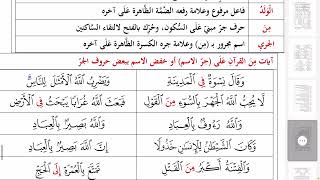 الْوَلَدُ فاعل مرفوع وعلامة رفعه الضمّة الظاهرة على آخره
مِنَ حرف جرّ مبنيّ على السُّكون، وحُرِّك بالفتح لالتقاء السَّاكنين
الجري اسم مجرور بـ (من) وعلامة جره الكسرة الظاهرة على آخره
آيات من القرآن على (جرّ الاسم) أو خفض الاسم ببعض حروف الجرّ
وَقَالَ نِسْوَةٌ فِي الْمَدِينَةِ وَيَضْرِبُ اللَّهُ الْأَمْثَالَ لِلنَّاسِ
لَا يُحِبُّ اللَّهُ الْجَهْرَ بِالسُّوءِ مِنَ الْقَوْلِ فَبَعَثَ اللَّهُ غُرَابًا يَبْحَثُ فِي الْأَرْضِ
وَاللَّهُ رَءُوفٌ بِالْعِبَادِ وَاللَّهُ بَصِيرٌ بِالْعِبَادِ
وَكَانَ الشَّيْطَانُ لِلْإِنسَانِ خَذُولًا إِنَّ اللَّهَ بَصِيرٌ بِالْعِبَادِ
وَالْفِتْنَةُ أَكْبَرُ مِنَ الْقَتْلِ تَمَتَّعَ بِالْعُمْرَةِ إِلَى الْحَجِّ